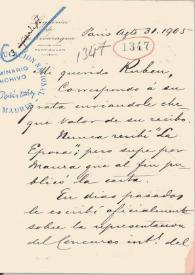 Paris Agto 31. 1905
1347
1347
Mi querido Ruben,
Correspondo á su
nota enviandole che
que valor de su recibo.
Nunca recibí "La
Epoca"; pero supe por
Maura que al fin pu-
blicó la carta.
En dias pasados
le escribí oficialmente
sobre la representacion
del Concurso int. del
SEMINARIO
ARCHIVO
MADRID